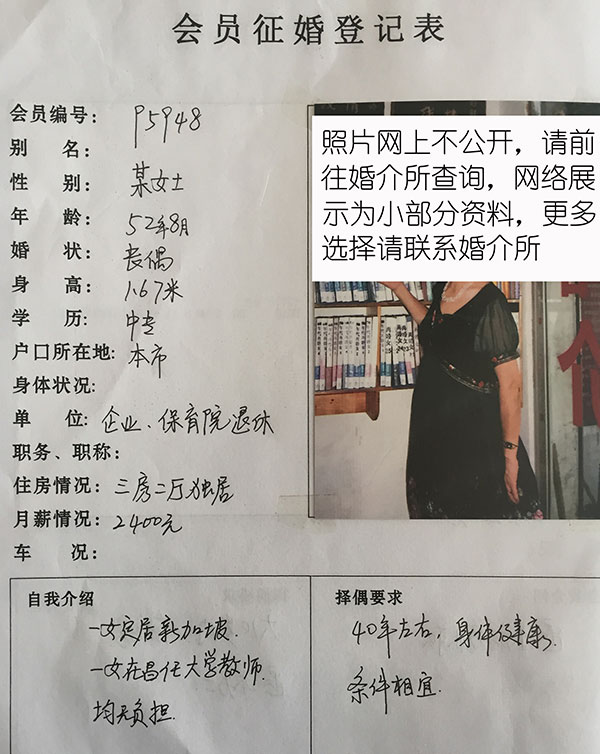 会员征婚登记表
会员编号: P5948
别 名:
性 别: 某女士
年 龄: 52年8月
婚 状: 丧偶
身 高: 1.67米
学 历: 中专
户口所在地: 本市
身体状况:
单 位: 企业、保育院退休
职务、职称:
住房情况: 三房二厅独居
月薪情况: 2400元
车 况:
照片网上不公开，请前
往婚介所查询，网络展
示为小部分资料，更多
选择请联系婚介所
自我介绍
一女定居新加坡.
一女在昌任大学教师.
均无负担.
择偶要求
40年左右，身体健康.
条件相宜.